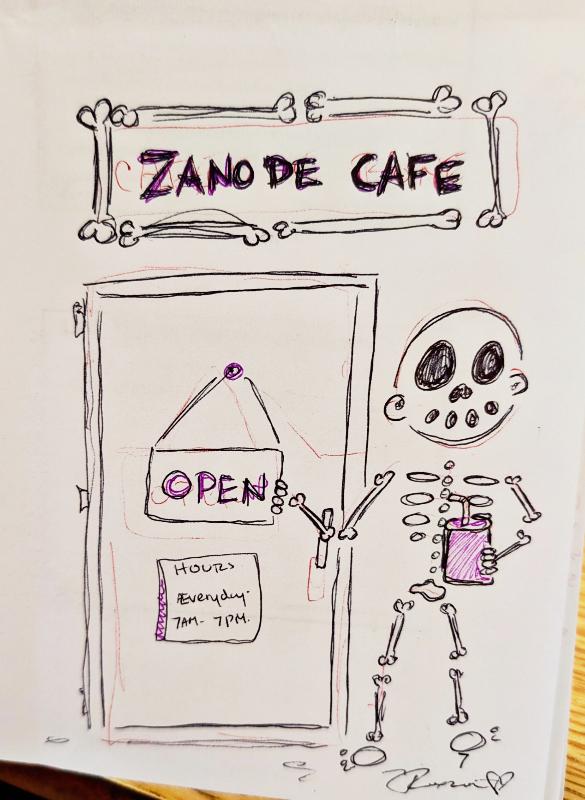 ZANODE CAFE
OPEN
HOURS
Everyday.
7AM- 7PM.